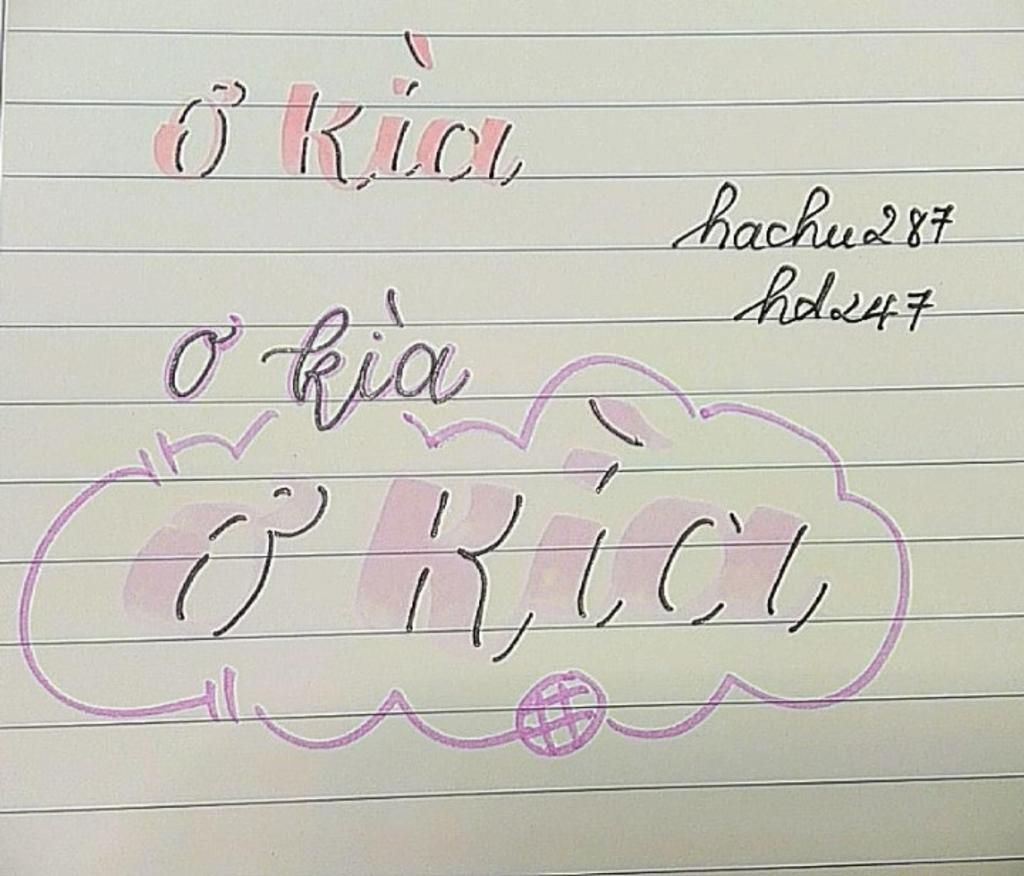 ơ kìa
hachu287
hd247
ơ kìa
ơ kìa